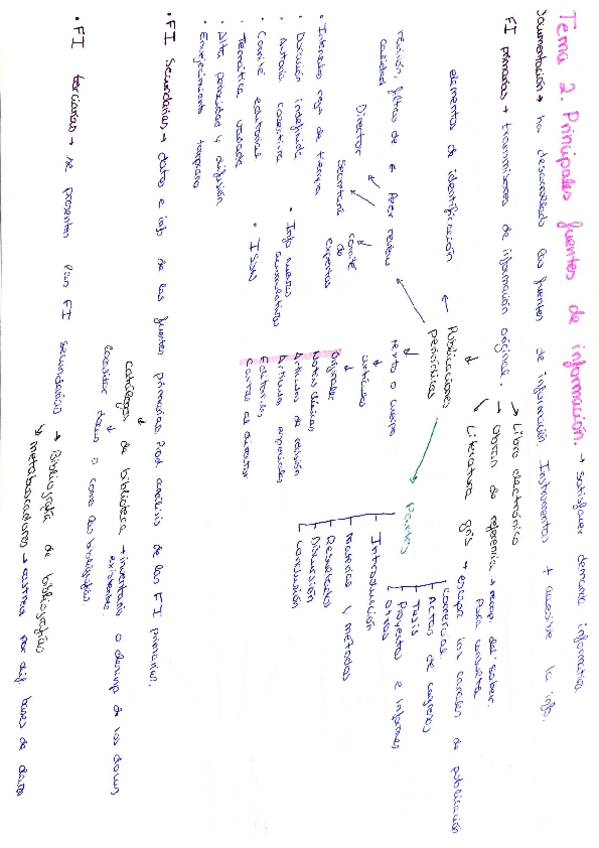 Tema 2. Principales fuentes de información. → satisfacer demanda informativa
Documentación → ha desarrollado las fuentes de información. Instrumentos + accesible la info.
FI primarias → transmisores de información original.
→ Libro electrónico
→ Obras de referencia → recop. del saber.
para consulta
↘ Literatura gris → escapa los canales de publicación
comercias.
Actas de congresos
Tesis
Proyectos e informes
Otros
↓ Publicaciones
periódicas
elementos de identificación ←
texto o cuerpo
artículos
originales
Notas clínicas
Artículos de revisión
Artículos especiales
Editorial,
Cartas al director
Partes
Introducción
Materias y métodos
Resultados
Discusión
Conclusión
reunión, filtros de ← Peer review
calidad
Director
Secretaría
comité
de
expertos
• Intervalos regu de tiempo
• Duración indefinida
• Autoría colectiva
• Comité editorial
• Temática variada
• Alta periodicidad y difusión
• Envejecimiento temprano
• Info nuevas
acumulativas
• ISSN
• FI Secundarias → datos e info de las fuentes primarias. Prod análisis de las FI primarias.
catálogos de biblioteca → inventario o descrip de los docus
existentes.
localizar docus o como las bibliografías.
• FI terciarias → se presentan las FI secundarias → Bibliografía de bibliografías
↘ metabuscadores → rastrear por dif bases de datos